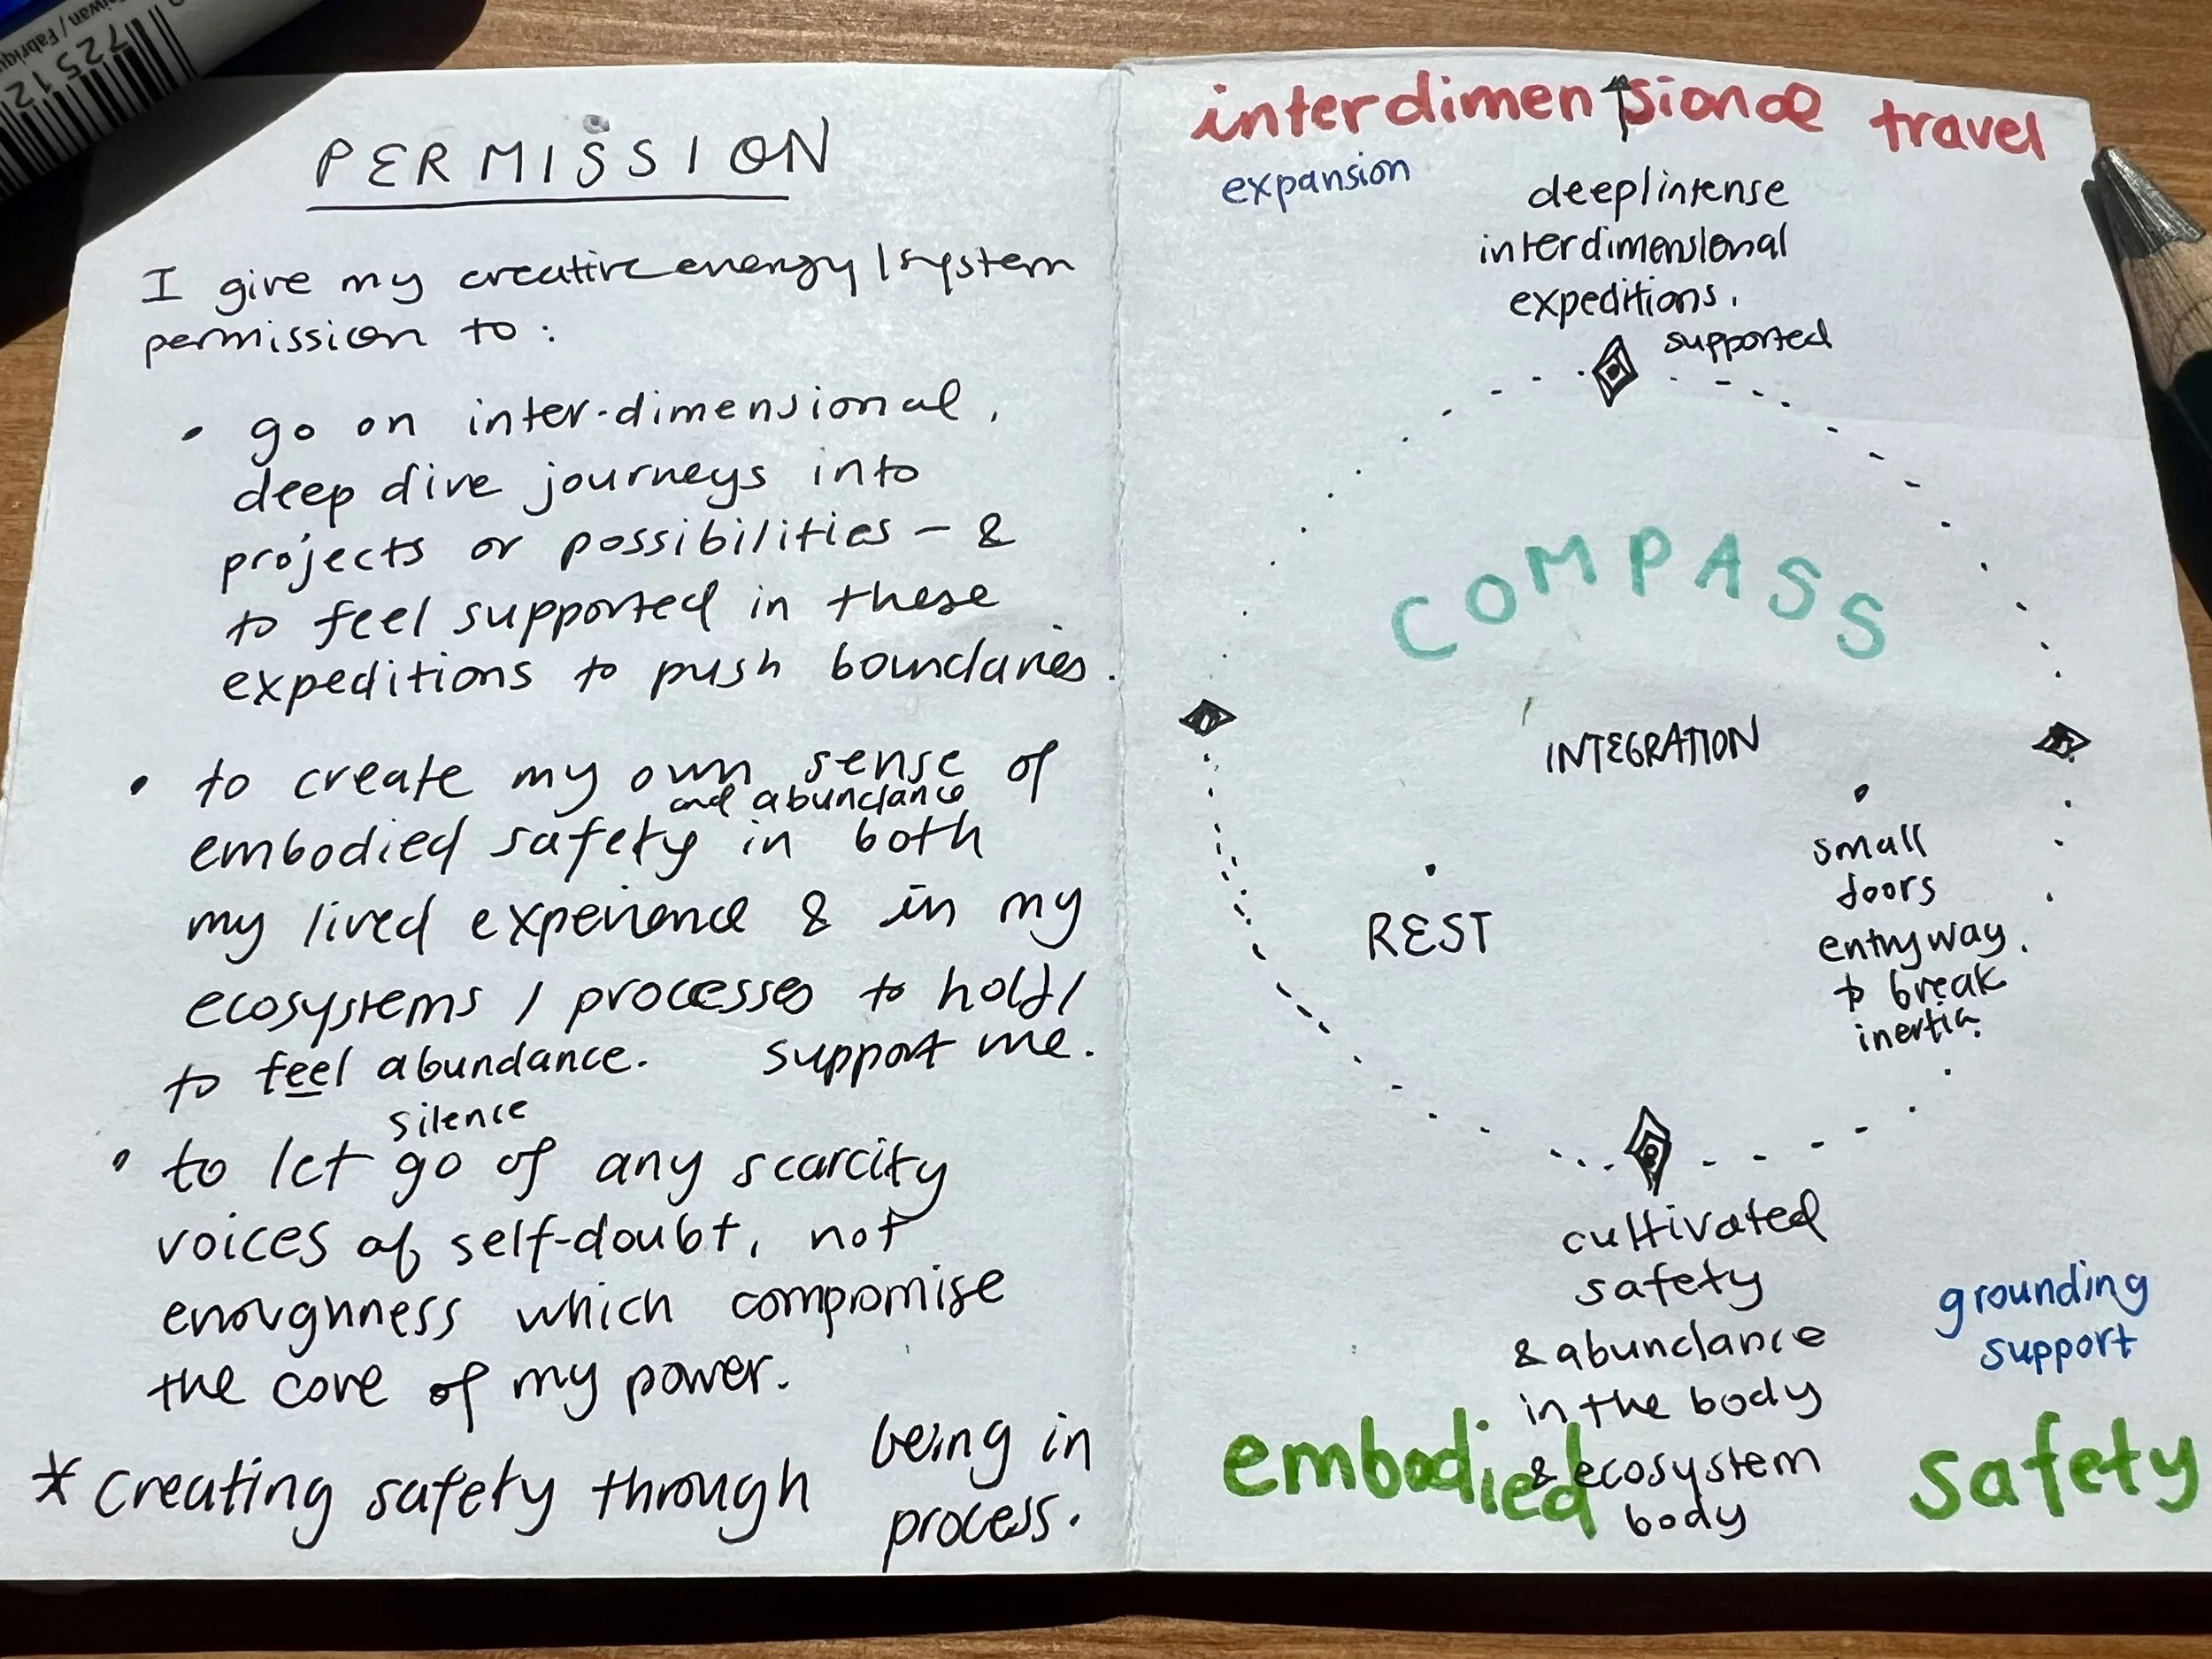 Taiwan / Fabriqu
72512
PERMISSION
I give my creative energy / system
permission to :
• go on inter-dimensional,
deep dive journeys into
projects or possibilities – &
to feel supported in these
expeditions to push boundaries.
• to create my own sense of
and abundance
embodied safety in both
my lived experience & in my
ecosystems / processes to hold /
to feel abundance. support me.
silence
• to let go of any scarcity
voices of self-doubt, not
enoughness which compromise
the core of my power.
* Creating safety through being in
process.
interdimensional travel
expansion
deep/intense
interdimensional
expeditions.
supported
COMPASS
INTEGRATION
REST
small
doors
entryway.
to break
inertia.
cultivated
safety
& abundance
in the body
& ecosystem
body
grounding
support
embodied safety